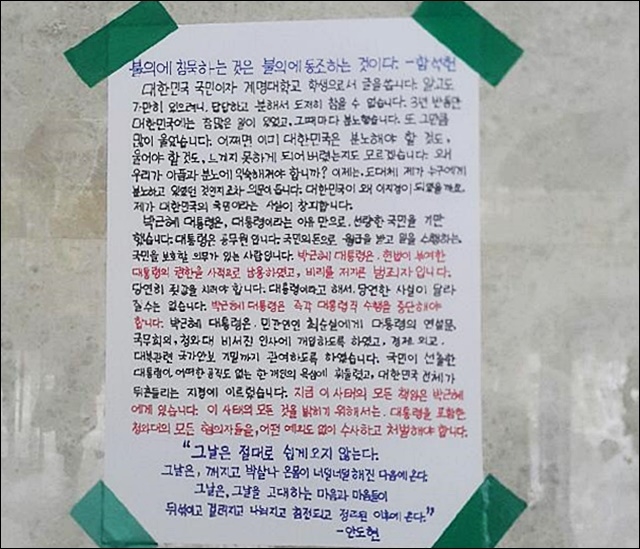 불의에 침묵하는 것은 불의에 동조하는 것이다. -함석헌
대한민국 국민이자 계명대학교 학생으로서 글을 씁니다. 알고도
가만히 있으려니, 답답하고 분해서 도저히 참을 수 없습니다. 3년 반동안
대한민국에는 참 많은 일이 있었고, 그때마다 분노했습니다. 또 그만큼
많이 울었습니다. 어쩌면 이미 대한민국은 분노해야 할 것도,
울어야 할 것도, 느끼지 못하게 되어버렸는지도 모르겠습니다. 왜
우리가 아픔과 분노에 익숙해져야 합니까? 이제는, 도대체 제가 누구에게
분노하고 있었던 것인지조차 의문이 듭니다. 대한민국이 왜 이지경이 되었을까요.
제가 대한민국의 국민이라는 사실이 창피합니다.
박근혜 대통령은, 대통령이라는 이유 만으로 선량한 국민을 기만
했습니다. 대통령은 공무원입니다. 국민의 돈으로 월급을 받고 일을 수행하는,
국민을 보호할 의무가 있는 사람입니다. 박근혜 대통령은 헌법이 부여한
대통령의 권한을 사적으로 남용하였고, 비리를 저지른 범죄자 입니다.
당연히 죗값을 치러야 합니다. 대통령이라고 해서, 당연한 사실이 달라
질 수는 없습니다. 박근혜 대통령은 즉각 대통령직 수행을 중단해야
합니다. 박근혜 대통령은 민간인인 최순실에게 대통령의 연설문,
국무회의, 청와대 비서진 인사에 개입하도록 하였고, 경제 외교.
대북관련 국가안보 기밀까지 관여하도록 하였습니다. 국민이 선출한
대통령이, 어떠한 공직도 없는 한 개인의 욕심에 휘둘렸고, 대한민국 전체가
뒤흔들리는 지경에 이르렀습니다. 지금 이 사태의 모든 책임은 박근혜
에게 있습니다. 이 사태의 모든 것을 밝히기 위해서는, 대통령을 포함한
청와대의 모든 혐의자들을, 어떤 예외도 없이 수사하고 처벌해야 합니다.
"그날은 절대로 쉽게 오지 않는다.
그날은, 깨지고 박살나 온몸이 너덜너덜해진 다음에 온다
그날은, 그날을 고대하는 마음과 마음들이
뒤섞이고 걸러지고 나눠지고 침전되고 정리된 이후에 온다."
-안도현